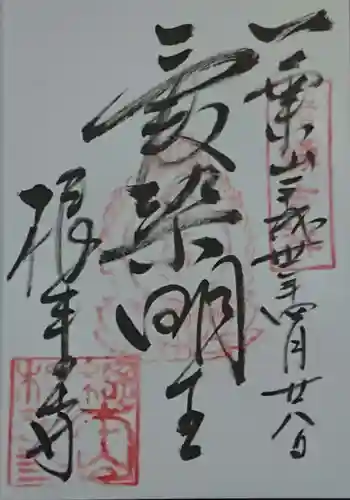 一乗山 平成丗年四月廿八日
愛染明王
根来寺